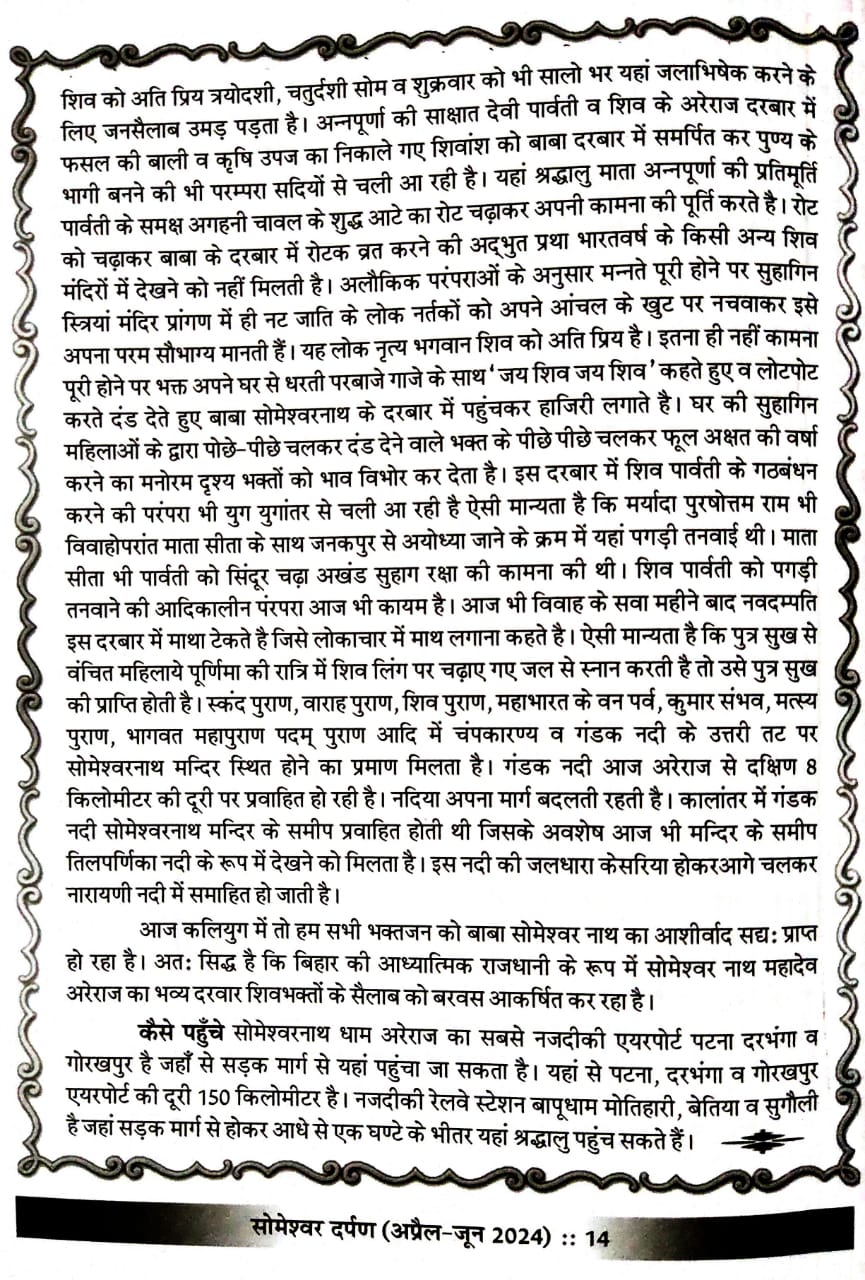 शिव को अति प्रिय त्रयोदशी, चतुर्दशी सोम व शुक्रवार को भी सालो भर यहां जलाभिषेक करने के
लिए जनसैलाब उमड़ पड़ता है। अन्नपूर्णा की साक्षात देवी पार्वती व शिव के अरेराज दरबार में
फसल की बाली व कृषि उपज का निकाले गए शिवांश को बाबा दरबार में समर्पित कर पुण्य के
भागी बनने की भी परम्परा सदियों से चली आ रही है। यहां श्रद्धालु माता अन्नपूर्णा की प्रतिमूर्ति
पार्वती के समक्ष अगहनी चावल के शुद्ध आटे का रोट चढ़ाकर अपनी कामना की पूर्ति करते है। रोट
को चढ़ाकर बाबा के दरबार में रोटक व्रत करने की अद्भुत प्रथा भारतवर्ष के किसी अन्य शिव
मंदिरों में देखने को नहीं मिलती है। अलौकिक परंपराओं के अनुसार मन्नते पूरी होने पर सुहागिन
स्त्रियां मंदिर प्रांगण में ही नट जाति के लोक नर्तकों को अपने आंचल के खुट पर नचवाकर इसे
अपना परम सौभाग्य मानती हैं। यह लोक नृत्य भगवान शिव को अति प्रिय है। इतना ही नहीं कामना
पूरी होने पर भक्त अपने घर से धरती परबाजे गाजे के साथ ‘जय शिव जय शिव’ कहते हुए व लोटपोट
करते दंड देते हुए बाबा सोमेश्वरनाथ के दरबार में पहुंचकर हाजिरी लगाते है। घर की सुहागिन
महिलाओं के द्वारा पोछे-पीछे चलकर दंड देने वाले भक्त के पीछे पीछे चलकर फूल अक्षत की वर्षा
करने का मनोरम दृश्य भक्तों को भाव विभोर कर देता है। इस दरबार में शिव पार्वती के गठबंधन
करने की परंपरा भी युग युगांतर से चली आ रही है ऐसी मान्यता है कि मर्यादा पुरषोत्तम राम भी
विवाहोपरांत माता सीता के साथ जनकपुर से अयोध्या जाने के क्रम में यहां पगड़ी तनवाई थी। माता
सीता भी पार्वती को सिंदूर चढ़ा अखंड सुहाग रक्षा की कामना की थी। शिव पार्वती को पगड़ी
तनवाने की आदिकालीन पंरपरा आज भी कायम है। आज भी विवाह के सवा महीने बाद नवदम्पति
इस दरबार में माथा टेकते है जिसे लोकाचार में माथ लगाना कहते है। ऐसी मान्यता है कि पुत्र सुख से
वंचित महिलाये पूर्णिमा की रात्रि में शिव लिंग पर चढ़ाए गए जल से स्नान करती है तो उसे पुत्र सुख
की प्राप्ति होती है। स्कंद पुराण, वाराह पुराण, शिव पुराण, महाभारत के वन पर्व, कुमार संभव, मत्स्य
पुराण, भागवत महापुराण पदम् पुराण आदि में चंपकारण्य व गंडक नदी के उत्तरी तट पर
सोमेश्वरनाथ मन्दिर स्थित होने का प्रमाण मिलता है। गंडक नदी आज अरेराज से दक्षिण 8
किलोमीटर की दूरी पर प्रवाहित हो रही है। नदिया अपना मार्ग बदलती रहती है। कालांतर में गंडक
नदी सोमेश्वरनाथ मन्दिर के समीप प्रवाहित होती थी जिसके अवशेष आज भी मन्दिर के समीप
तिलपर्णिका नदी के रूप में देखने को मिलता है। इस नदी की जलधारा केसरिया होकरआगे चलकर
नारायणी नदी में समाहित हो जाती है।
आज कलियुग में तो हम सभी भक्तजन को बाबा सोमेश्वर नाथ का आशीर्वाद सद्य: प्राप्त
हो रहा है। अत: सिद्ध है कि बिहार की आध्यात्मिक राजधानी के रूप में सोमेश्वर नाथ महादेव
अरेराज का भव्य दरवार शिवभक्तों के सैलाब को बरवस आकर्षित कर रहा है।
कैसे पहुँचे सोमेश्वरनाथ धाम अरेराज का सबसे नजदीकी एयरपोर्ट पटना दरभंगा व
गोरखपुर है जहाँ से सड़क मार्ग से यहां पहुंचा जा सकता है। यहां से पटना, दरभंगा व गोरखपुर
एयरपोर्ट की दूरी 150 किलोमीटर है। नजदीकी रेलवे स्टेशन बापूधाम मोतिहारी, बेतिया व सुगौली
है जहां सड़क मार्ग से होकर आधे से एक घण्टे के भीतर यहां श्रद्धालु पहुंच सकते हैं।
सोमेश्वर दर्पण (अप्रैल-जून 2024) :: 14